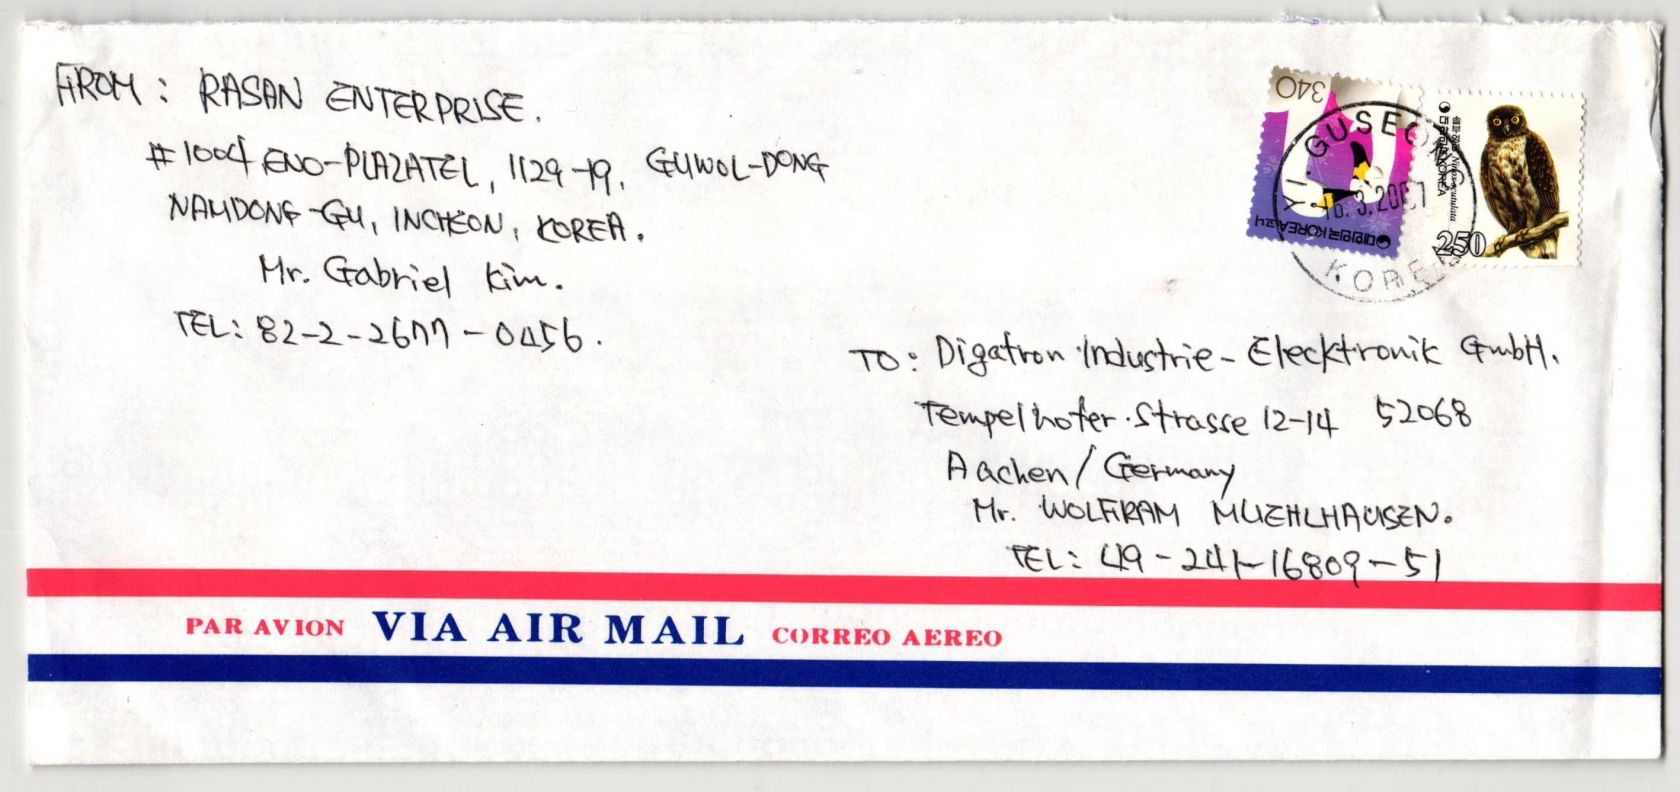 FROM: RASAN ENTERPRISE.
#1004 ENO-PLAZATEL, 1129-19, GUWOL-DONG
NAMDONG-GU, INCHEON, KOREA.
Mr. Gabriel Kim.
TEL: 82-2-2677-0456.
340
대한민국 KOREA
YI. GUSEO
16.3.2007
KOREA
대한민국 KOREA
솔부엉이 Ninox scutulata
250
TO: Digatron Industrie-Elecktronik GmbH.
Tempelhofer Strasse 12-14 52068
Aachen/Germany
Mr. WOLFRAM MUEHLHAUSEN.
TEL: 49-241-16809-51
PAR AVION VIA AIR MAIL CORREO AEREO